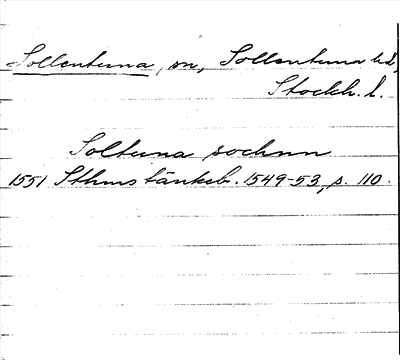 Sollentuna, sn, Sollentuna hd,
Stockh. l.
Soltuna sochnn
1551 Sthms tänkeb. 1549-53, s. 110.